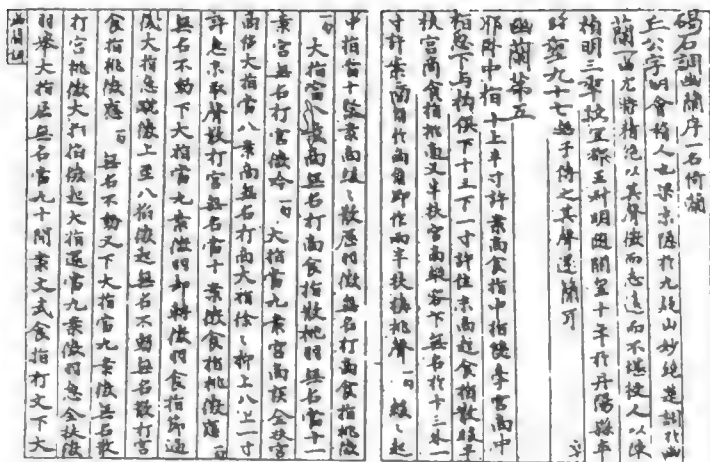 碣石調幽蘭序一名倚蘭
丘公字明會稽人也梁末隱於九疑山妙絕楚調於幽
蘭一曲尤特精絕以其聲微而志遠而不堪授人以陳
禎明三年授宜都王叔明隨開皇十年於丹陽縣卒
時年九十七無子傳之其聲遂簡耳
幽蘭第五
耶臥中指十上半寸許案商食指中指雙牽宮商中
指急下与拘俱下十三下一寸許住末商起食指散緩半
扶宮商食指挑商又半扶宮商縱容下無名於十三外一
寸許案商角於商角即作兩半扶挾挑聲一句緩緩起
中指當十案商緩緩散歷羽徵無名打商食指挑徵
一句大指當八案商無名打商食指散挑羽無名當十一
案宮無名打宮徵吟一句大指當九案宮商疾全扶宮
商移大指當八案商無名打商大指徐徐抑上八上一寸
許急末取聲散打宮無名當十案徵食指挑徵應一句
無名不動下大指當九案徵羽却轉徵羽食指節過
徵大指急蹴徵上至八掐徵起無名不動無名散打宮
食指挑徵應一句無名不動又下大指當九案徵無名散
打宮挑徵大指掐徵起大指還當九案徵羽急全扶徵
羽舉大指居無名當九十間案文武食指打文下大